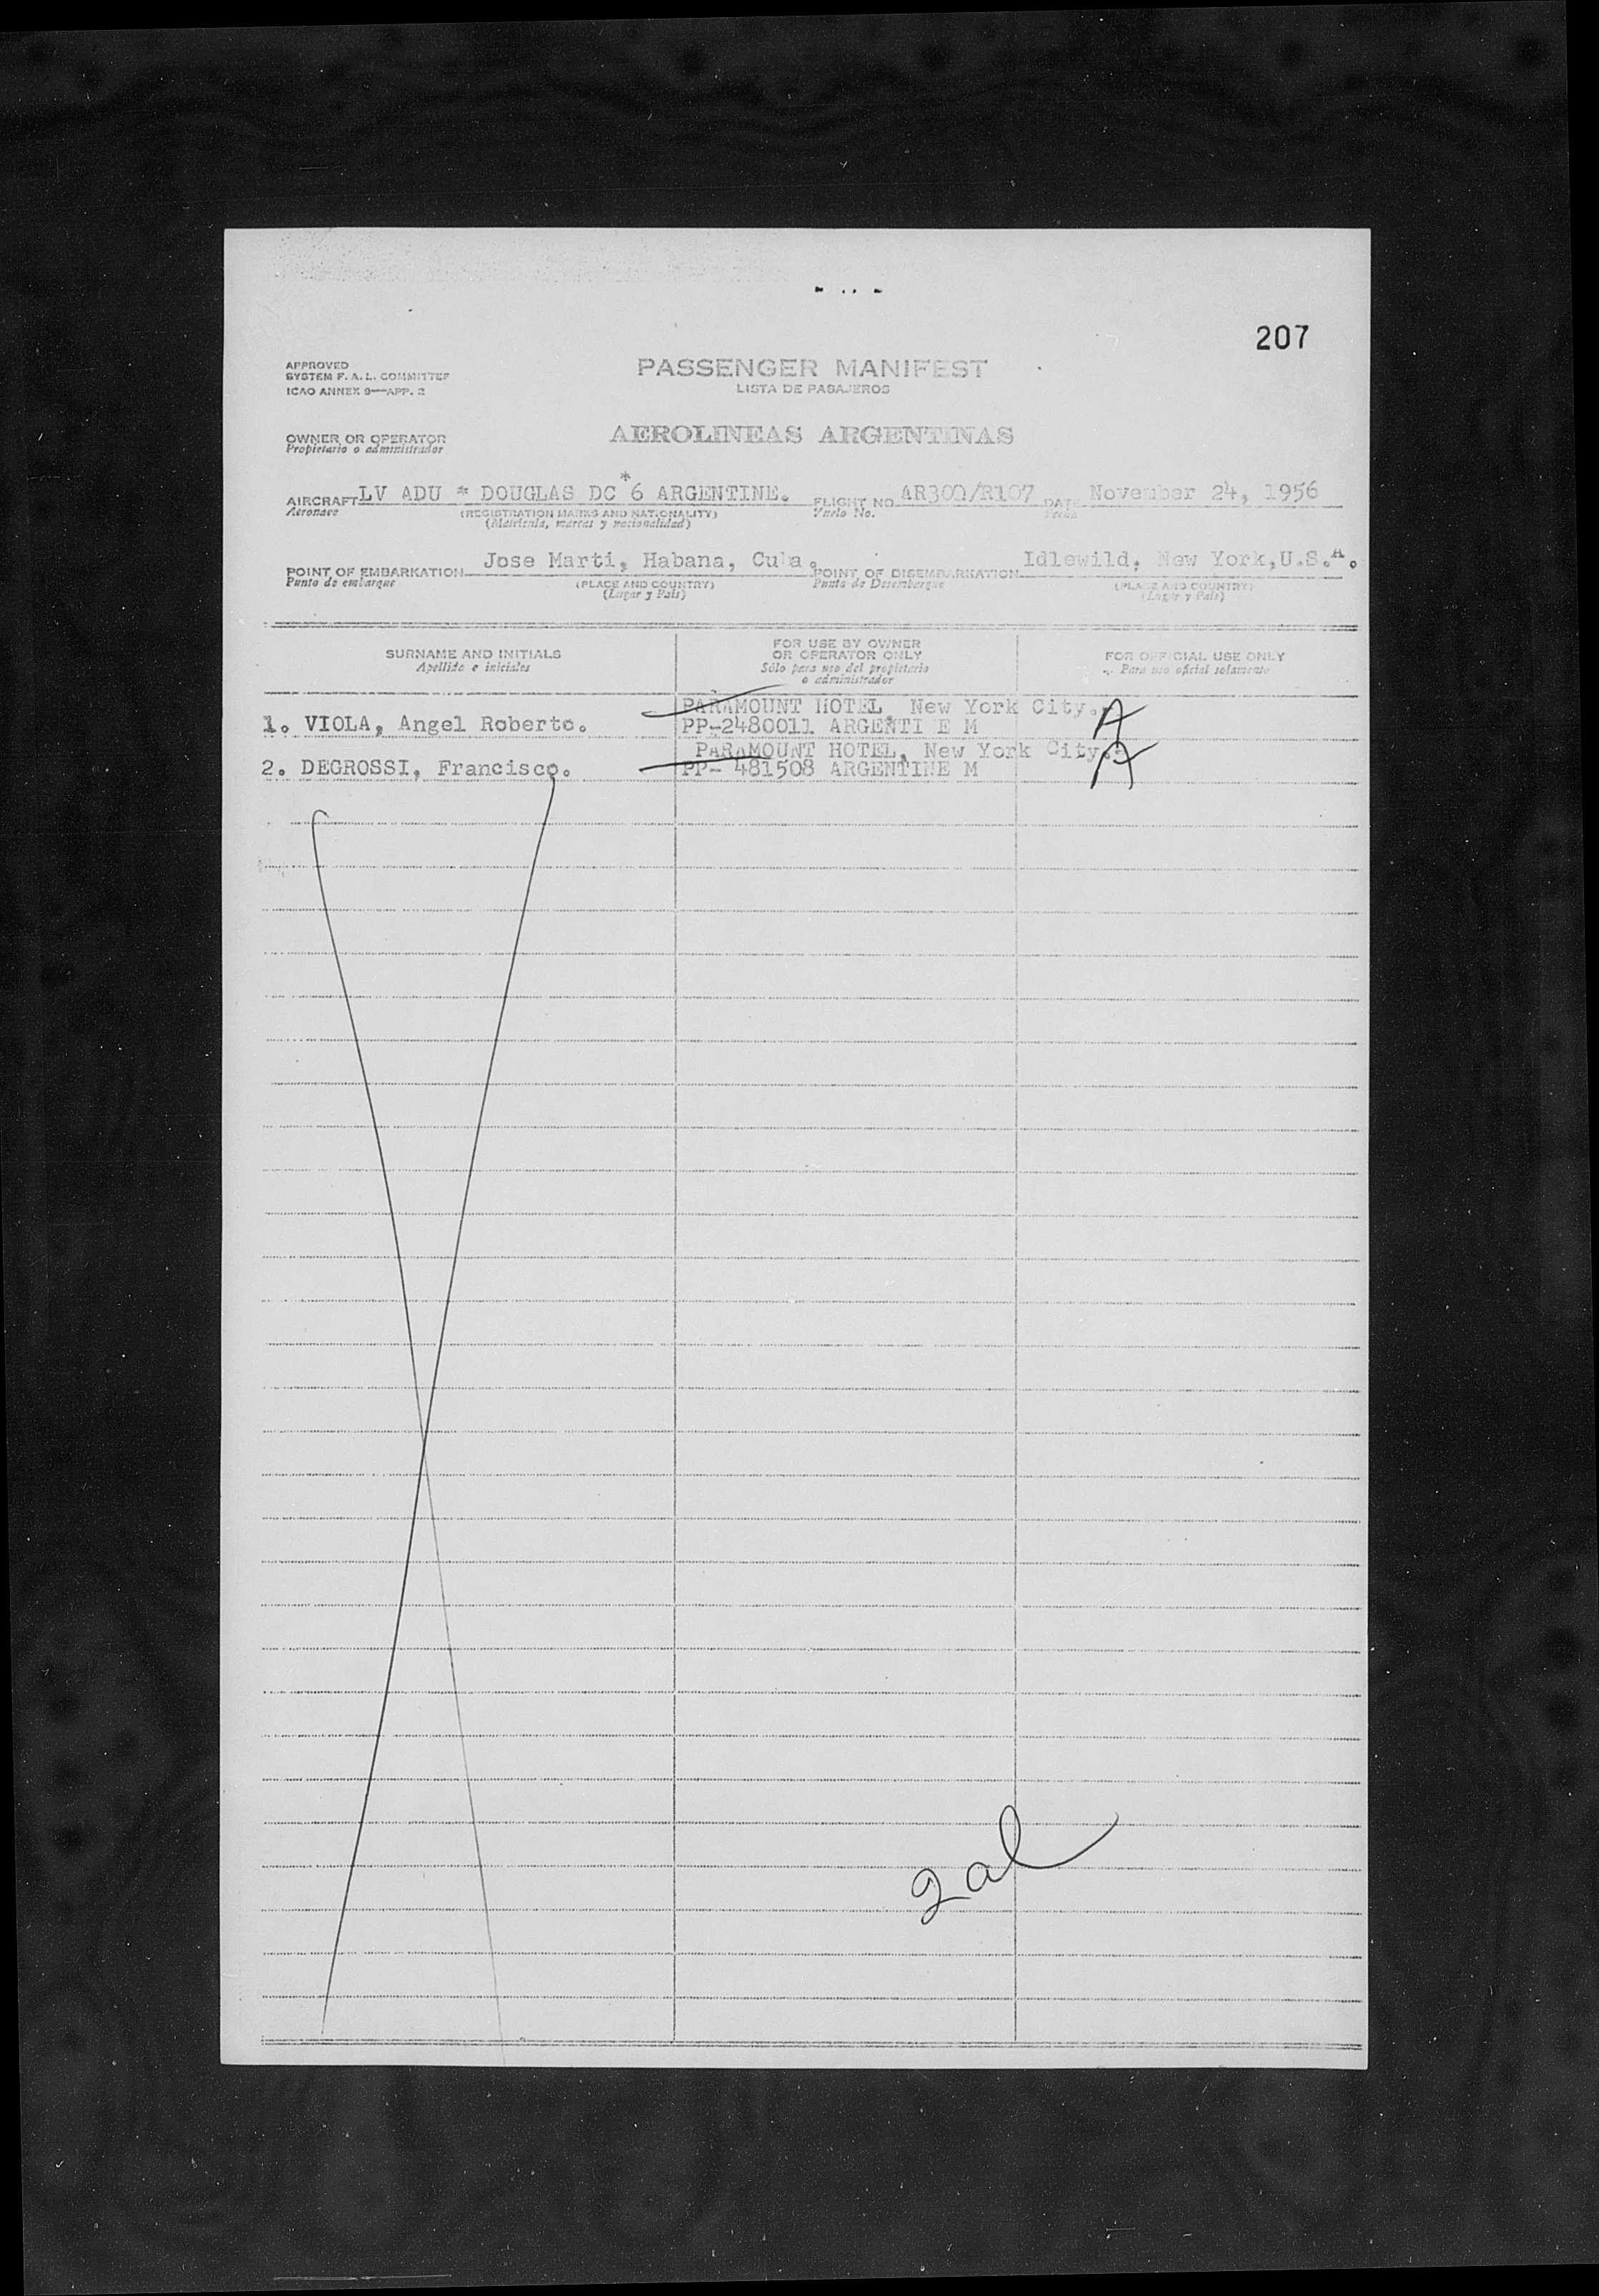 207
APPROVED
SYSTEM F. A. L. COMMITTEE
ICAO ANNEX 9—APP. 2
PASSENGER MANIFEST
LISTA DE PASAJEROS
OWNER OR OPERATOR
Propietario o administrador
AEROLINEAS ARGENTINAS
AIRCRAFT LV ADU * DOUGLAS DC * 6 ARGENTINE. FLIGHT NO AR300/R107 DATE November 24, 1956
Aeronave (REGISTRATION MARKS AND NATIONALITY) Vuelo No. Fecha
(Matrícula, marcas y nacionalidad)
POINT OF EMBARKATION Jose Marti, Habana, Cuba. POINT OF DISEMBARKATION Idlewild, New York, U.S.A.
Punto de embarque (PLACE AND COUNTRY) Punto de Desembarque (PLACE AND COUNTRY)
(Lugar y País) (Lugar y País)
SURNAME AND INITIALS
Apellido e iniciales
FOR USE BY OWNER
OR OPERATOR ONLY
Sólo para uso del propietario
o administrador
FOR OFFICIAL USE ONLY
Para uso oficial solamente
PARAMOUNT HOTEL, New York City.
1. VIOLA, Angel Roberto. PP-2480011 ARGENTI E M A
PARAMOUNT HOTEL, New York City.
2. DEGROSSI, Francisco. PP- 481508 ARGENTINE M A
2 al